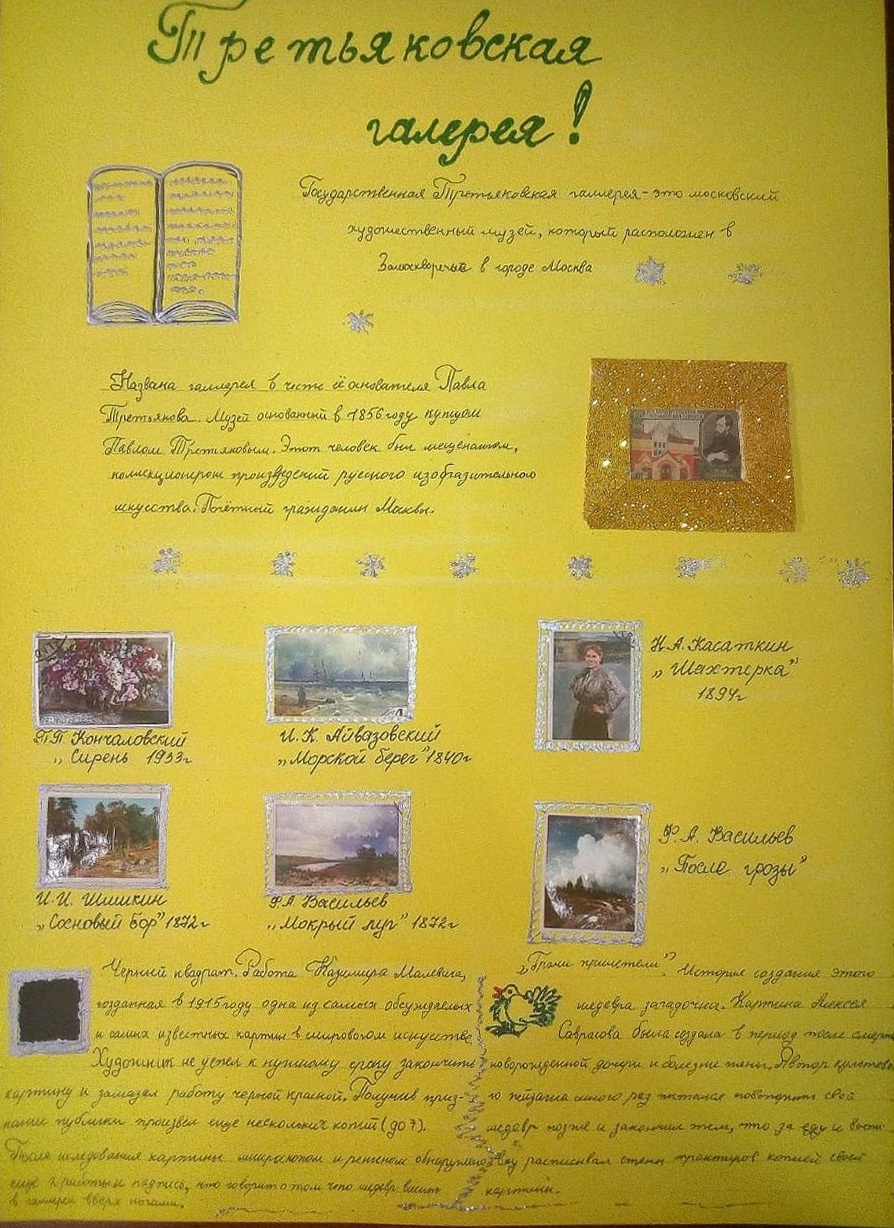 Третьяковская
галерея!
Государственная Третьяковская галлерея - это московский
художественный музей, который расположен в
Замоскворечье в городе Москва
Названа галлерея в честь её основателя Павла
Третьякова. Музей основанный в 1856 году купцом
Павлом Третьяковым. Этот человек был меценатом,
коллекционером произведений русского изобразительного
искусства. Почётный гражданин Москвы.
П.П. Кончаловский
„Сирень 1933г
И. К. Айвазовский
„Морской берег" 1840г
Н.А. Касаткин
„Шахтерка"
1894г
И.И. Шишкин
„Сосновый бор" 1872г
Ф.А Васильев
„Мокрый луг" 1872г
Ф. А. Васильев
„После грозы"
Черный квадрат. Работа Казимира Малевича,
созданная в 1915 году одна из самых обсуждаемых
и самых известных картин в мировом искусстве
Художник не успел к нужному сроку закончить
картину и замазал работу черной краской. Получив приз-
нание публики произвел ещё несколько копий (до 7).
После исследования картины микроскопом и ренгеном обнаружено
еще 2 работы и надпись, что говорит о том что шедевр висит
в галерее вверх ногами.
„Грачи прилетели". История создания этого
шедевра загадочна. Картина Алексея
Саврасова была создана в период после смерти
новорожденной дочери и болезни жены. Автор
го пейзажа много раз пытался повторить свой
шедевр позже и закончил тем, что за еду и
вку расписывал стены трактиров копией своей
картины.